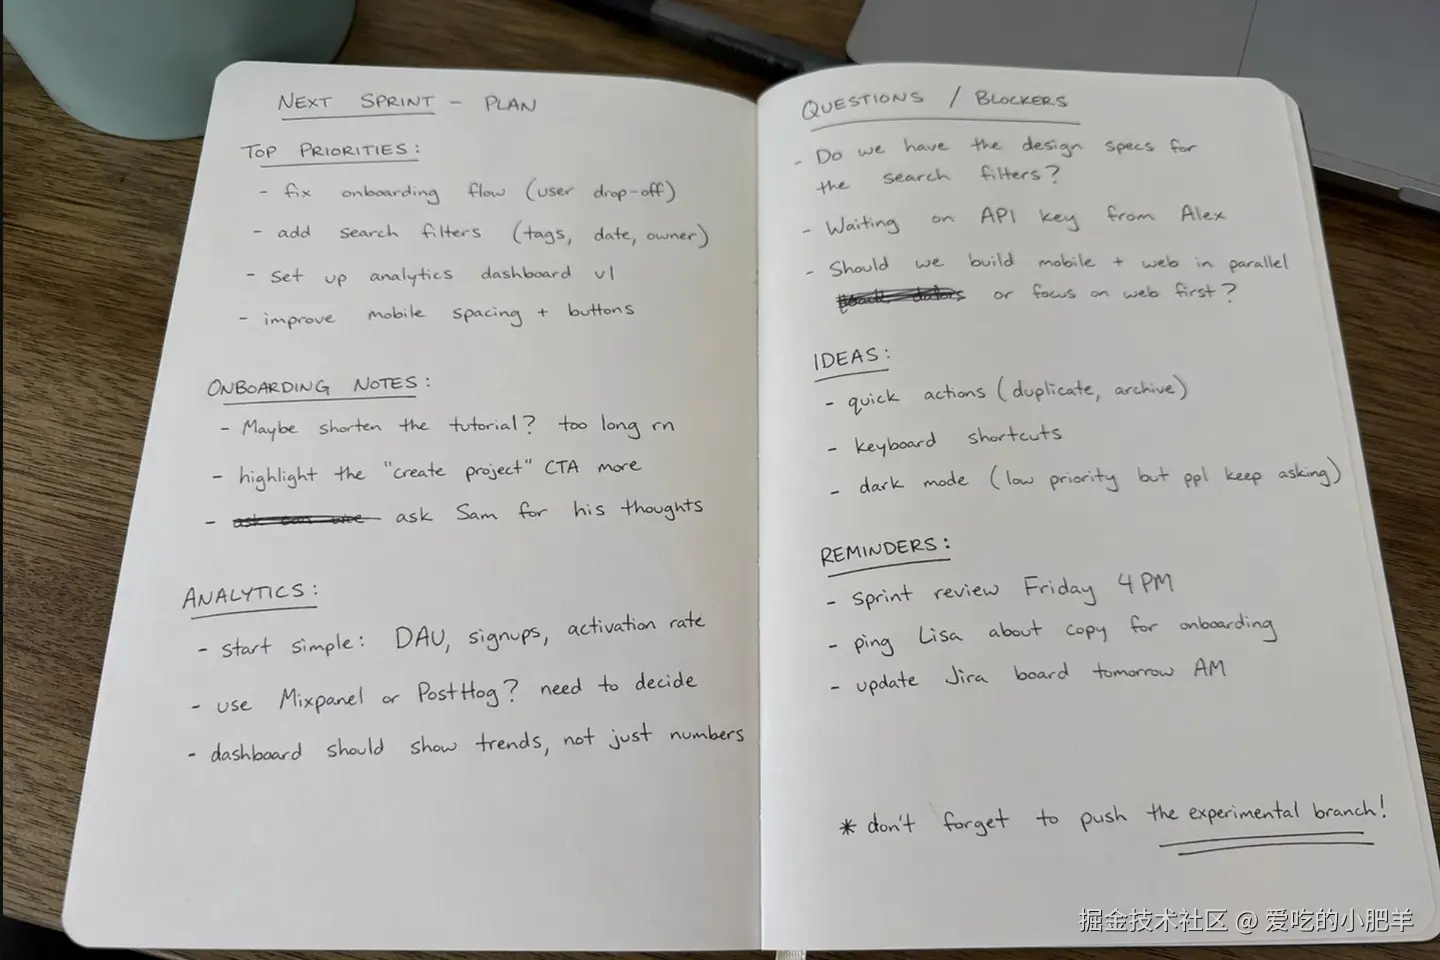 NEXT SPRINT - PLAN
TOP PRIORITIES:
- fix onboarding flow (user drop-off)
- add search filters (tags, date, owner)
- set up analytics dashboard v1
- improve mobile spacing + buttons
ONBOARDING NOTES:
- Maybe shorten the tutorial? too long rn
- highlight the "create project" CTA more
- ask Sam for his thoughts
ANALYTICS:
- start simple: DAU, signups, activation rate
- use Mixpanel or PostHog? need to decide
- dashboard should show trends, not just numbers
QUESTIONS / BLOCKERS
- Do we have the design specs for
the search filters?
- Waiting on API key from Alex
- Should we build mobile + web in parallel
or focus on web first?
IDEAS:
- quick actions (duplicate, archive)
- keyboard shortcuts
- dark mode (low priority but ppl keep asking)
REMINDERS:
- sprint review Friday 4 PM
- ping Lisa about copy for onboarding
- update Jira board tomorrow AM
* don't forget to push the experimental branch!
掘金技术社区 @ 爱吃的小肥羊